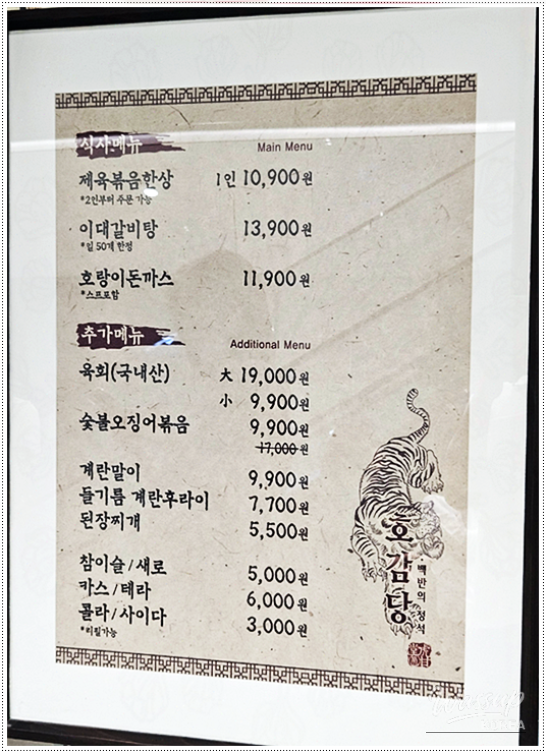 식사메뉴 Main Menu
제육볶음한상 1인 10,900원
*2인부터 주문 가능
이대갈비탕 13,900원
*일 50개 한정
호랑이돈까스 11,900원
*스프포함
추가메뉴 Additional Menu
육회(국내산) 大 19,000원
小 9,900원
숯불오징어볶음 9,900원
17,000원
계란말이 9,900원
들기름 계란후라이 7,700원
된장찌개 5,500원
참이슬/새로 5,000원
카스/테라 6,000원
콜라/사이다 3,000원
*리필가능
호감당
백반의 정석